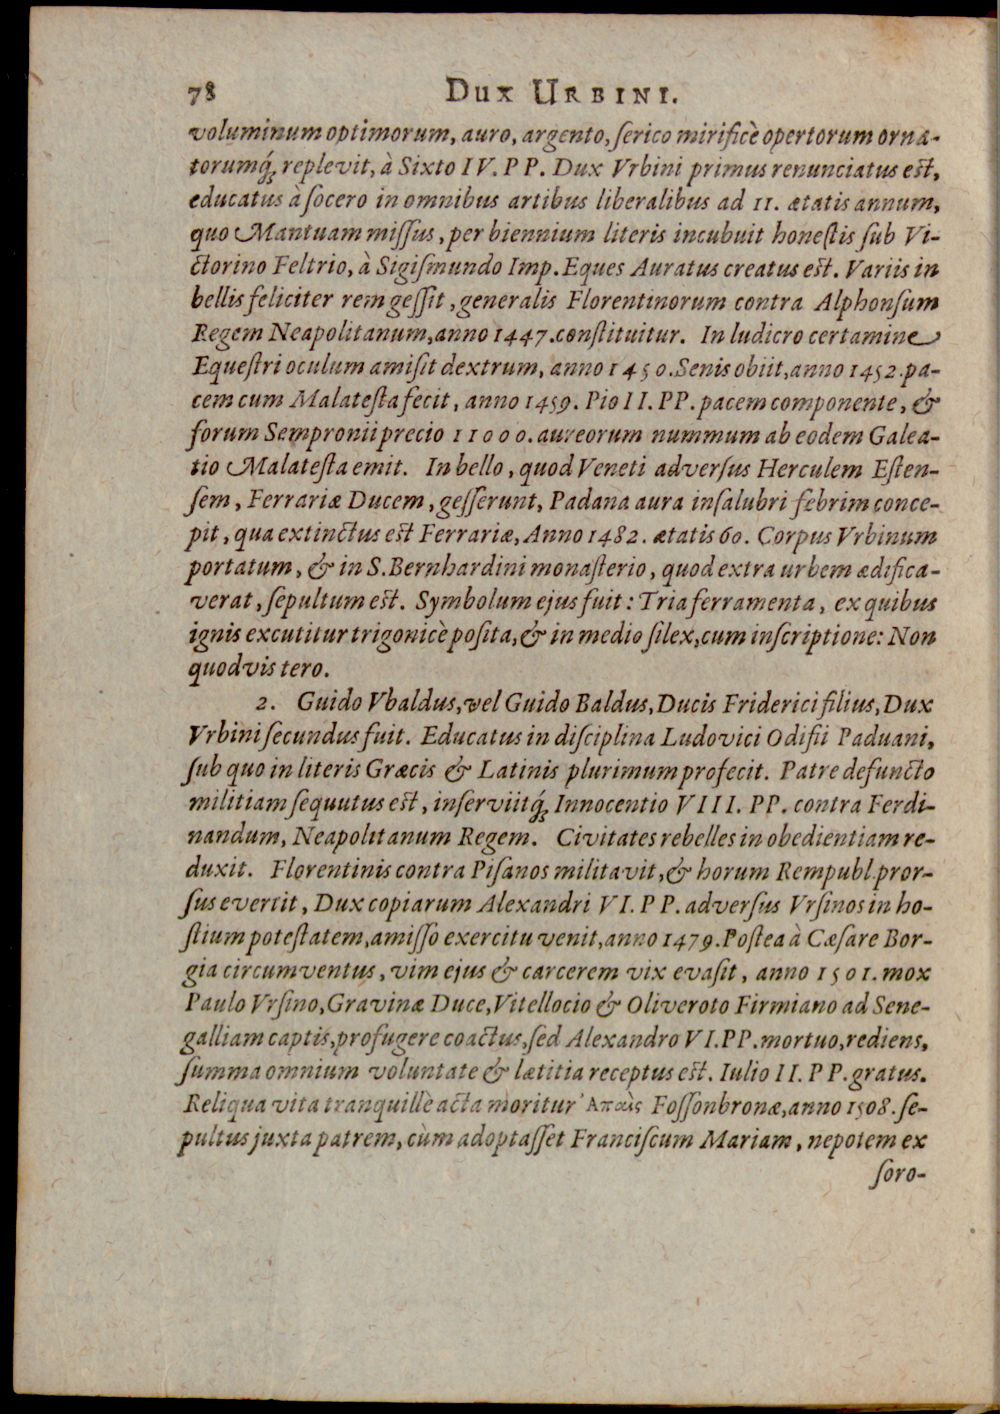 78 DUX URBINI.
voluminum optimorum, auro, argento, ſerico mirificè opertorum orna-
torumq́; replevit, à Sixto IV. PP. Dux Vrbini primus renunciatus eſt,
educatus à ſocero in omnibus artibus liberalibus ad 11. ætatis annum,
quo Mantuam miſſus, per biennium literis incubuit honeſtis ſub Vi-
ctorino Feltrio, à Sigiſmundo Imp. Eques Auratus creatus eſt. Variis in
bellis feliciter rem geſſit, generalis Florentinorum contra Alphonſum
Regem Neapolitanum, anno 1447. conſtituitur. In ludicro certamine
Equeſtri oculum amiſit dextrum, anno 1450. Senis obiit, anno 1452. pa-
cem cum Malateſta fecit, anno 1459. Pio II. PP. pacem componente, &
forum Sempronii precio 11000. aureorum nummum ab eodem Galea-
tio Malateſta emit. In bello, quod Veneti adverſus Herculem Eſten-
ſem, Ferrariæ Ducem, geſſerunt, Padana aura inſalubri febrim conce-
pit, qua extinctus eſt Ferrariæ, Anno 1482. ætatis 60. Corpus Vrbinum
portatum, & in S. Bernhardini monaſterio, quod extra urbem ædifica-
verat, ſepultum eſt. Symbolum ejus fuit: Tria ferramenta, ex quibus
ignis excutitur trigonicè poſita, & in medio ſilex, cum inſcriptione: Non
quodvis tero.
2. Guido Vbaldus, vel Guido Baldus, Ducis Friderici filius, Dux
Vrbini ſecundus fuit. Educatus in diſciplina Ludovici Odiſii Paduani,
ſub quo in literis Græcis & Latinis plurimum profecit. Patre defuncto
militiam ſequutus eſt, inſerviitq́; Innocentio VIII. PP. contra Ferdi-
nandum, Neapolitanum Regem. Civitates rebelles in obedientiam re-
duxit. Florentinis contra Piſanos militavit, & horum Rempubl. pror-
ſus evertit, Dux copiarum Alexandri VI. PP. adverſus Vrſinos in ho-
ſtium poteſtatem, amiſſo exercitu venit, anno 1479. Poſtea à Cæſare Bor-
gia circumventus, vim ejus & carcerem vix evaſit, anno 1501. mox
Paulo Vrſino, Gravinæ Duce, Vitellocio & Oliveroto Firmiano ad Sene-
galliam captis, profugere coactus, ſed Alexandro VI. PP. mortuo, rediens,
ſumma omnium voluntate & lætitia receptus eſt. Iulio II. PP. gratus.
Reliqua vita tranquillè acta moritur Ἄπαις Foſſonbronæ, anno 1508. ſe-
pultus juxta patrem, cùm adoptaſſet Franciſcum Mariam, nepotem ex
ſoro-